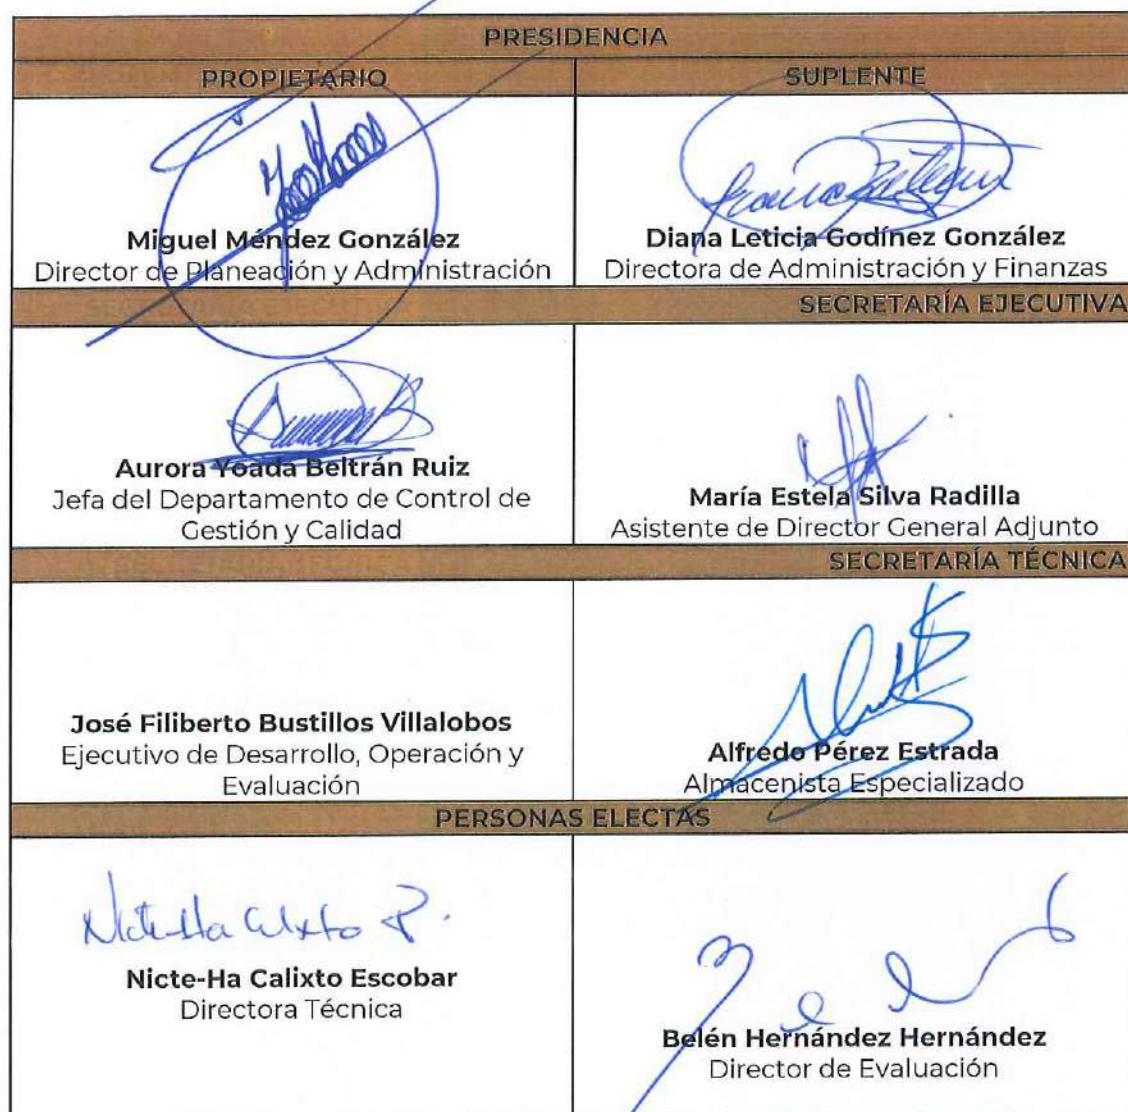 PRESIDENCIA
PROPIETARIO
SUPLENTE
Miguel Méndez González
Director de Planeación y Administración
Diana Leticia Godínez González
Directora de Administración y Finanzas
SECRETARÍA EJECUTIVA
Aurora Yoada Beltrán Ruiz
Jefa del Departamento de Control de
Gestión y Calidad
María Estela Silva Radilla
Asistente de Director General Adjunto
SECRETARÍA TÉCNICA
José Filiberto Bustillos Villalobos
Ejecutivo de Desarrollo, Operación y
Evaluación
Alfredo Pérez Estrada
Almacenista Especializado
PERSONAS ELECTAS
Nicte-Ha Calixto
Nicte-Ha Calixto Escobar
Directora Técnica
Belén Hernández Hernández
Director de Evaluación